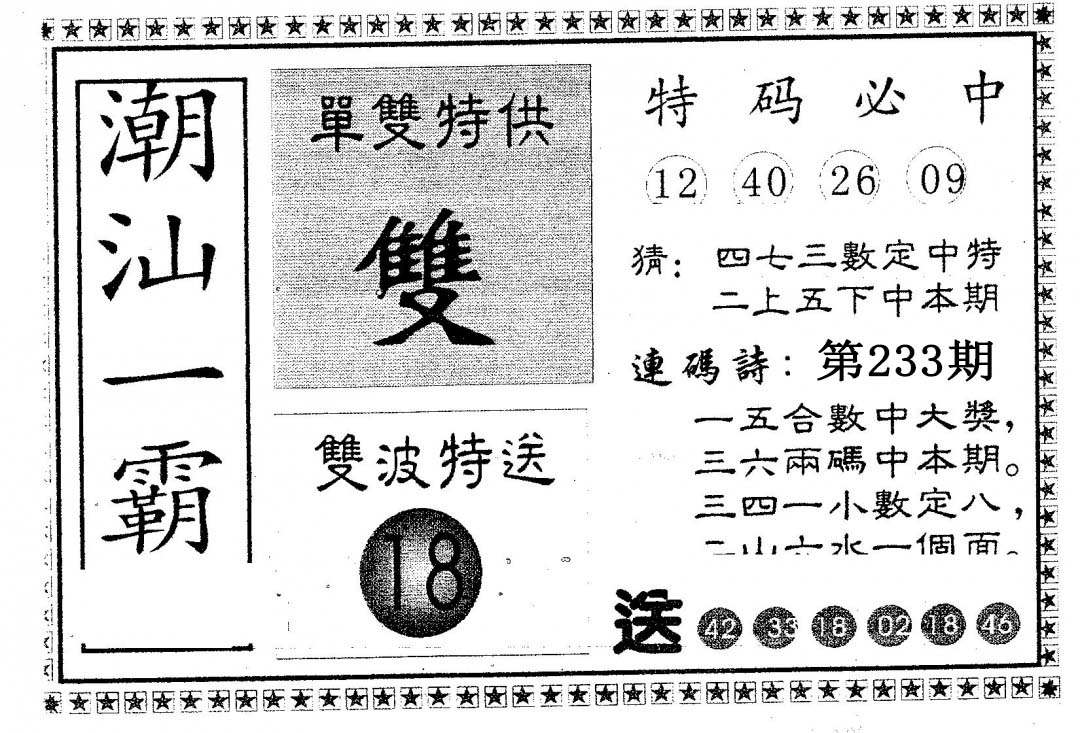 潮汕一霸
單雙特供
雙
雙波特送
18
特码必中
12 40 26 09
猜：四七三數定中特
二上五下中本期
連碼詩：第233期
一五合數中大獎，
三六兩碼中本期。
三四一小數定八，
二山六水一個面。
送 42 33 18 02 18 46